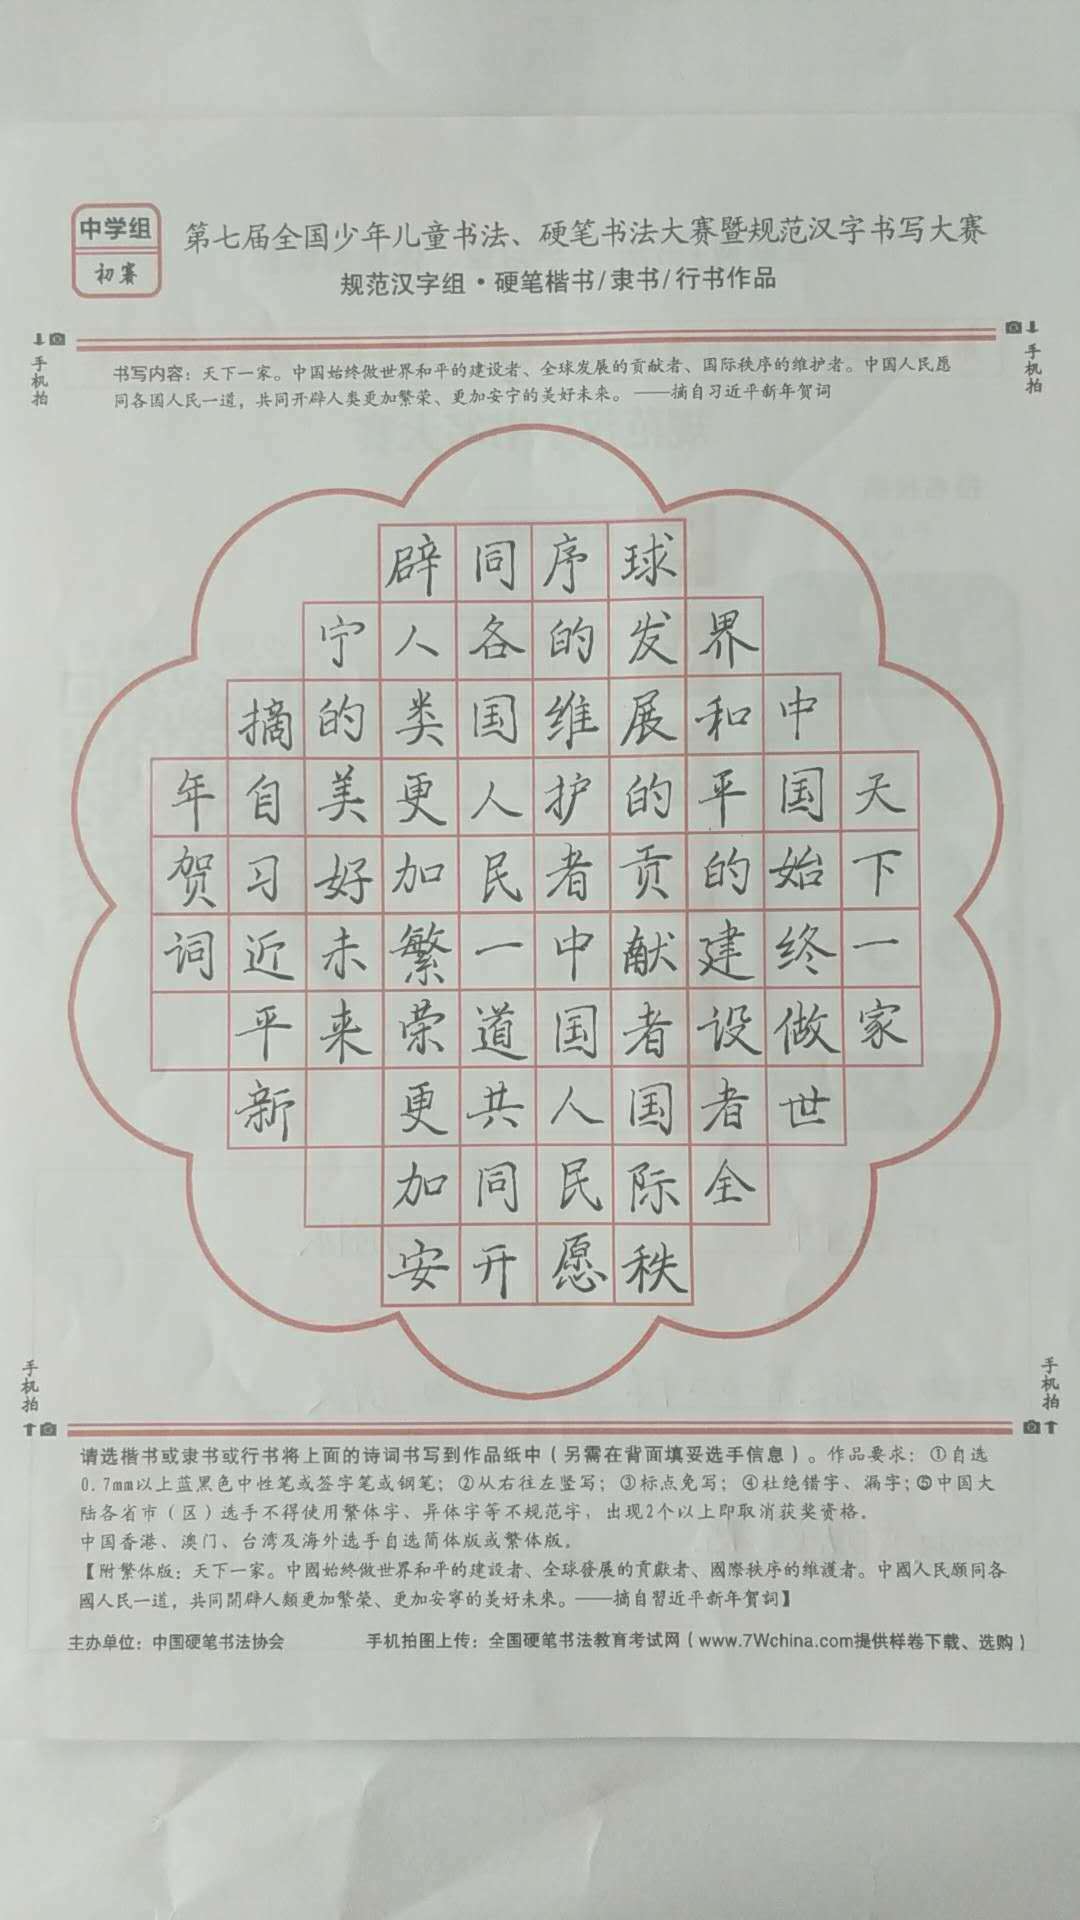 中学组
初赛
第七届全国少年儿童书法、硬笔书法大赛暨规范汉字书写大赛
规范汉字组·硬笔楷书/隶书/行书作品
手机拍
手机拍
书写内容：天下一家。中国始终做世界和平的建设者、全球发展的贡献者、国际秩序的维护者。中国人民愿
同各国人民一道，共同开辟人类更加繁荣、更加安宁的美好未来。 ——摘自习近平新年贺词
天下一家
中国始终做世
界和平的建设者全
球发展的贡献者国际秩
序的维护者中国人民愿
同各国人民一道共同开
辟人类更加繁荣更加安
宁的美好未来
摘自习近平新
年贺词
手机拍
手机拍
请选楷书或隶书或行书将上面的诗词书写到作品纸中（另需在背面填妥选手信息）。作品要求：①自选
0.7mm以上蓝黑色中性笔或签字笔或钢笔；②从右往左竖写；③标点免写；④杜绝错字、漏字；⑤中国大
陆各省市（区）选手不得使用繁体字、异体字等不规范字，出现2个以上即取消获奖资格。
中国香港、澳门、台湾及海外选手自选简体版或繁体版。
【附繁体版：天下一家。中國始終做世界和平的建設者、全球發展的貢獻者、國際秩序的維護者。中國人民願同各
國人民一道，共同開辟人類更加繁榮、更加安寧的美好未來。——摘自習近平新年賀詞】
主办单位：中国硬笔书法协会
手机拍图上传：全国硬笔书法教育考试网（www.7Wchina.com提供样卷下载、选购）